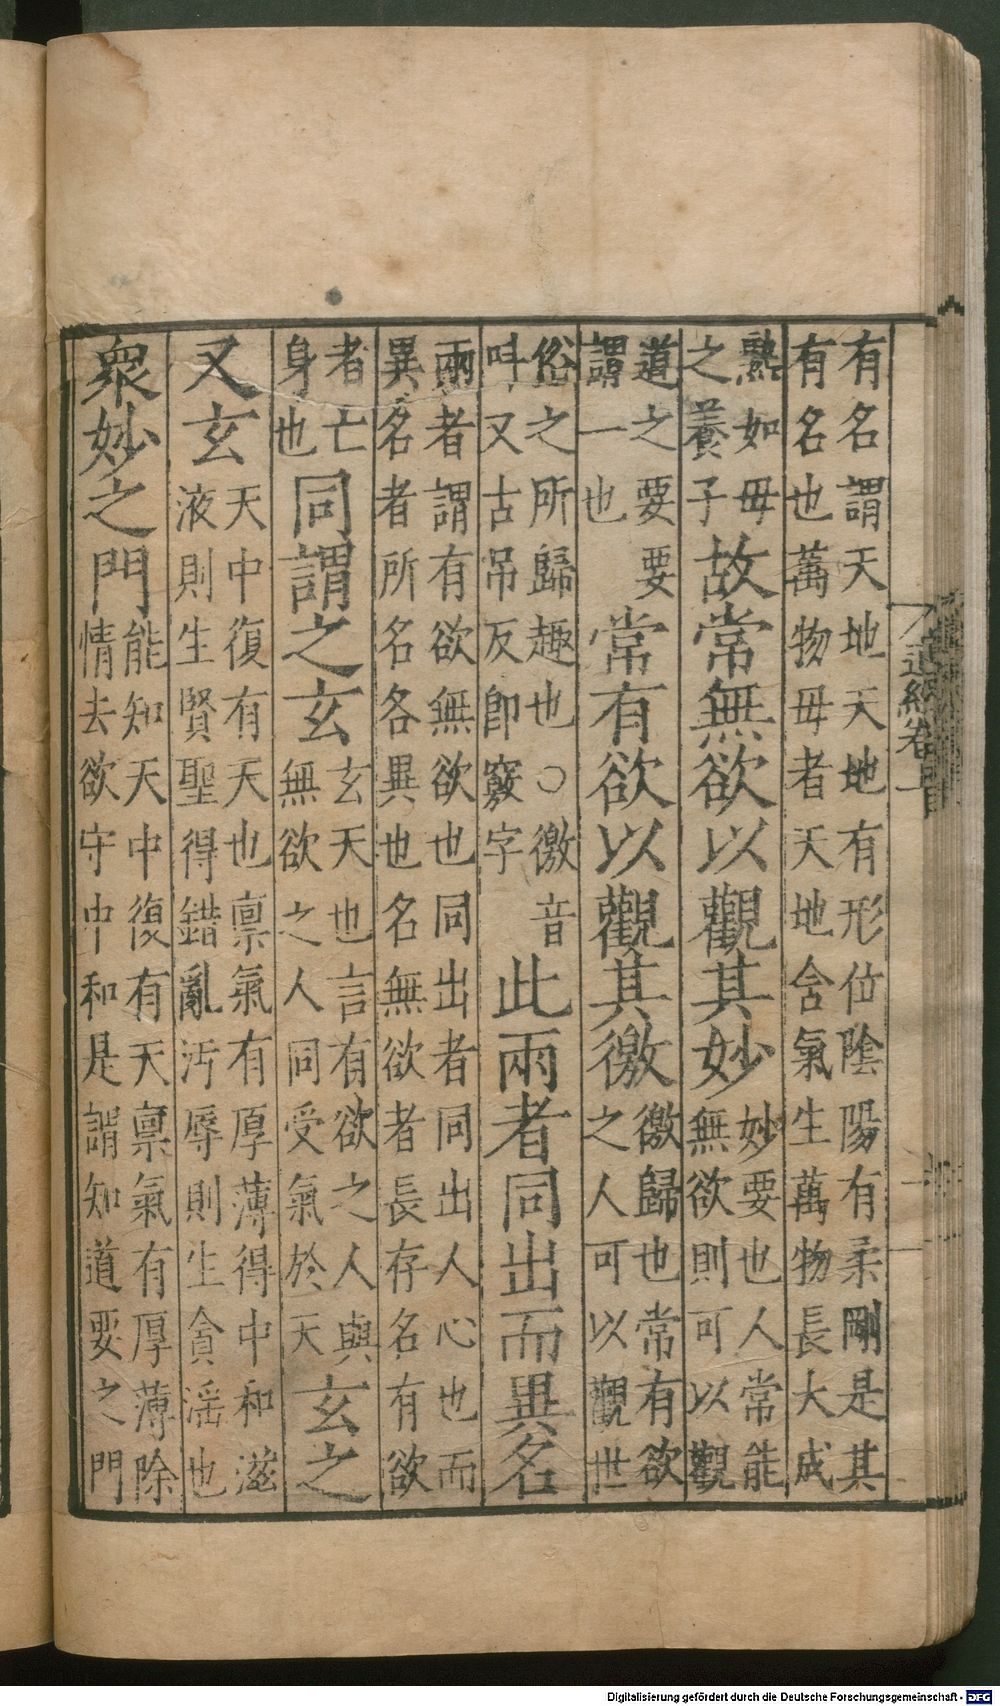 有名謂天地天地有形位陰陽有柔剛是其
有名也萬物母者天地含氣生萬物長大成
熟如母
之養子
故常無欲以觀其妙
妙要也人常能
無欲則可以觀
道之要要
謂一也
常有欲以觀其徼
徼歸也常有欲
之人可以觀世
俗之所歸趣也○徼音
叫又古吊反即竅字
此兩者同出而異名
兩者謂有欲無欲也同出者同出人心也而
異名者所名各異也名無欲者長存名有欲
者亡
身也
同謂之玄
玄天也言有欲之人與
無欲之人同受氣於天
玄之
又玄
天中復有天也禀氣有厚薄得中和滋
液則生賢聖得錯亂汚辱則生貪滛也
衆妙之門
能知天中復有天禀氣有厚薄除
情去欲守中和是謂知道要之門
道經卷一
Digitalisierung gefördert durch die Deutsche Forschungsgemeinschaft - DFG